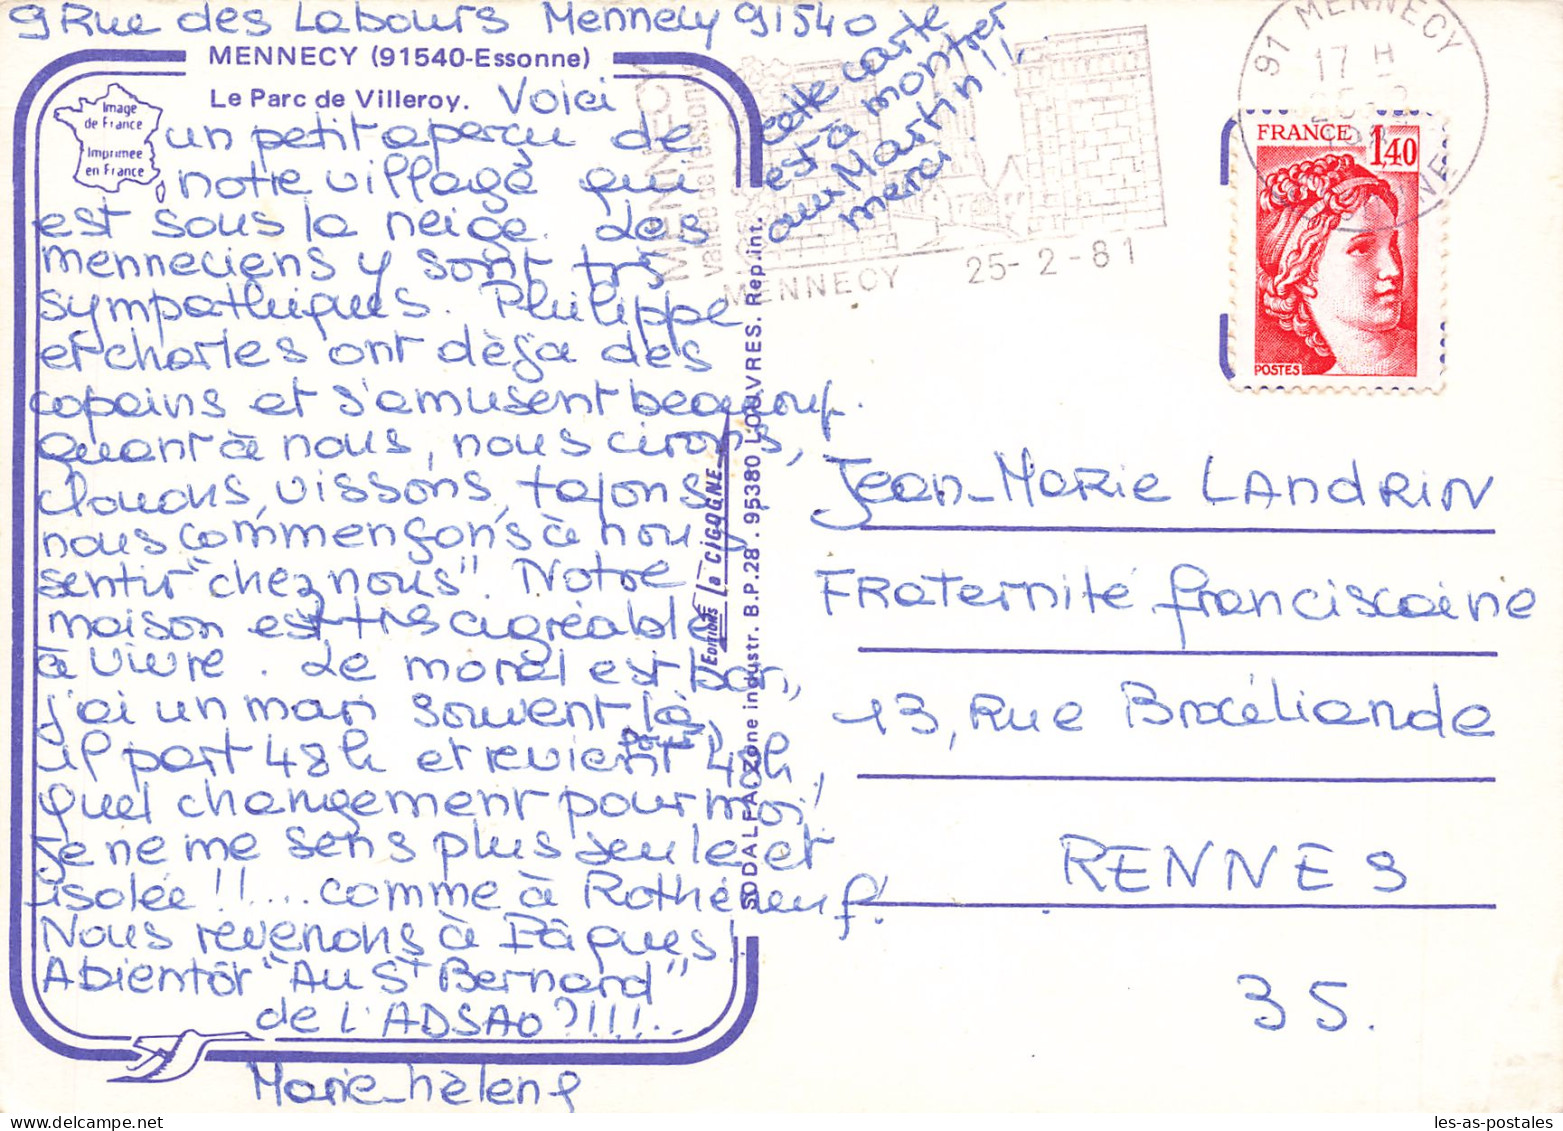 9 Rue des Labours Mennecy 91540
MENNECY (91540-Essonne)
Le Parc de Villeroy.
Image
de France
Imprimée
en France
Voici
un petit aperçu de
notre village qui
est sous la neige. Les
menneciens y sont très
sympathiques. Philippe
et charles ont déjà des
copains et s'amusent beaucoup.
Quant à nous, nous cirons,
Clouons, vissons, tajons
nous commençons à nous
sentir "chez nous". Notre
maison est très agréable
à vivre. Le moral est bon,
j'ai un mari souvent là,
il part 48h et revient pour 48h,
Quel changement pour moi,
Je ne me sens plus seule et
isolée !!.... comme à Rothéneuf.
Nous revenons à Pâques!
A bientôt "Au St Bernard"
de l'ADSAO?!!!!...
Marie-hélène
cette carte
est à montrer
aux Martin!!,
merci!
MENNECY
MENNECY 25-2-81
91 MENNECY
17 H
25-2
FRANCE
1,40
POSTES
Editions la CIGOGNE
SODALFA Zone industr. B.P.28. 95380 LOUVRES. Rep.int.
Jean-Marie LANDRIN
Fraternité franciscaine
13, Rue Brocéliande
RENNES
35.
les-as-postales